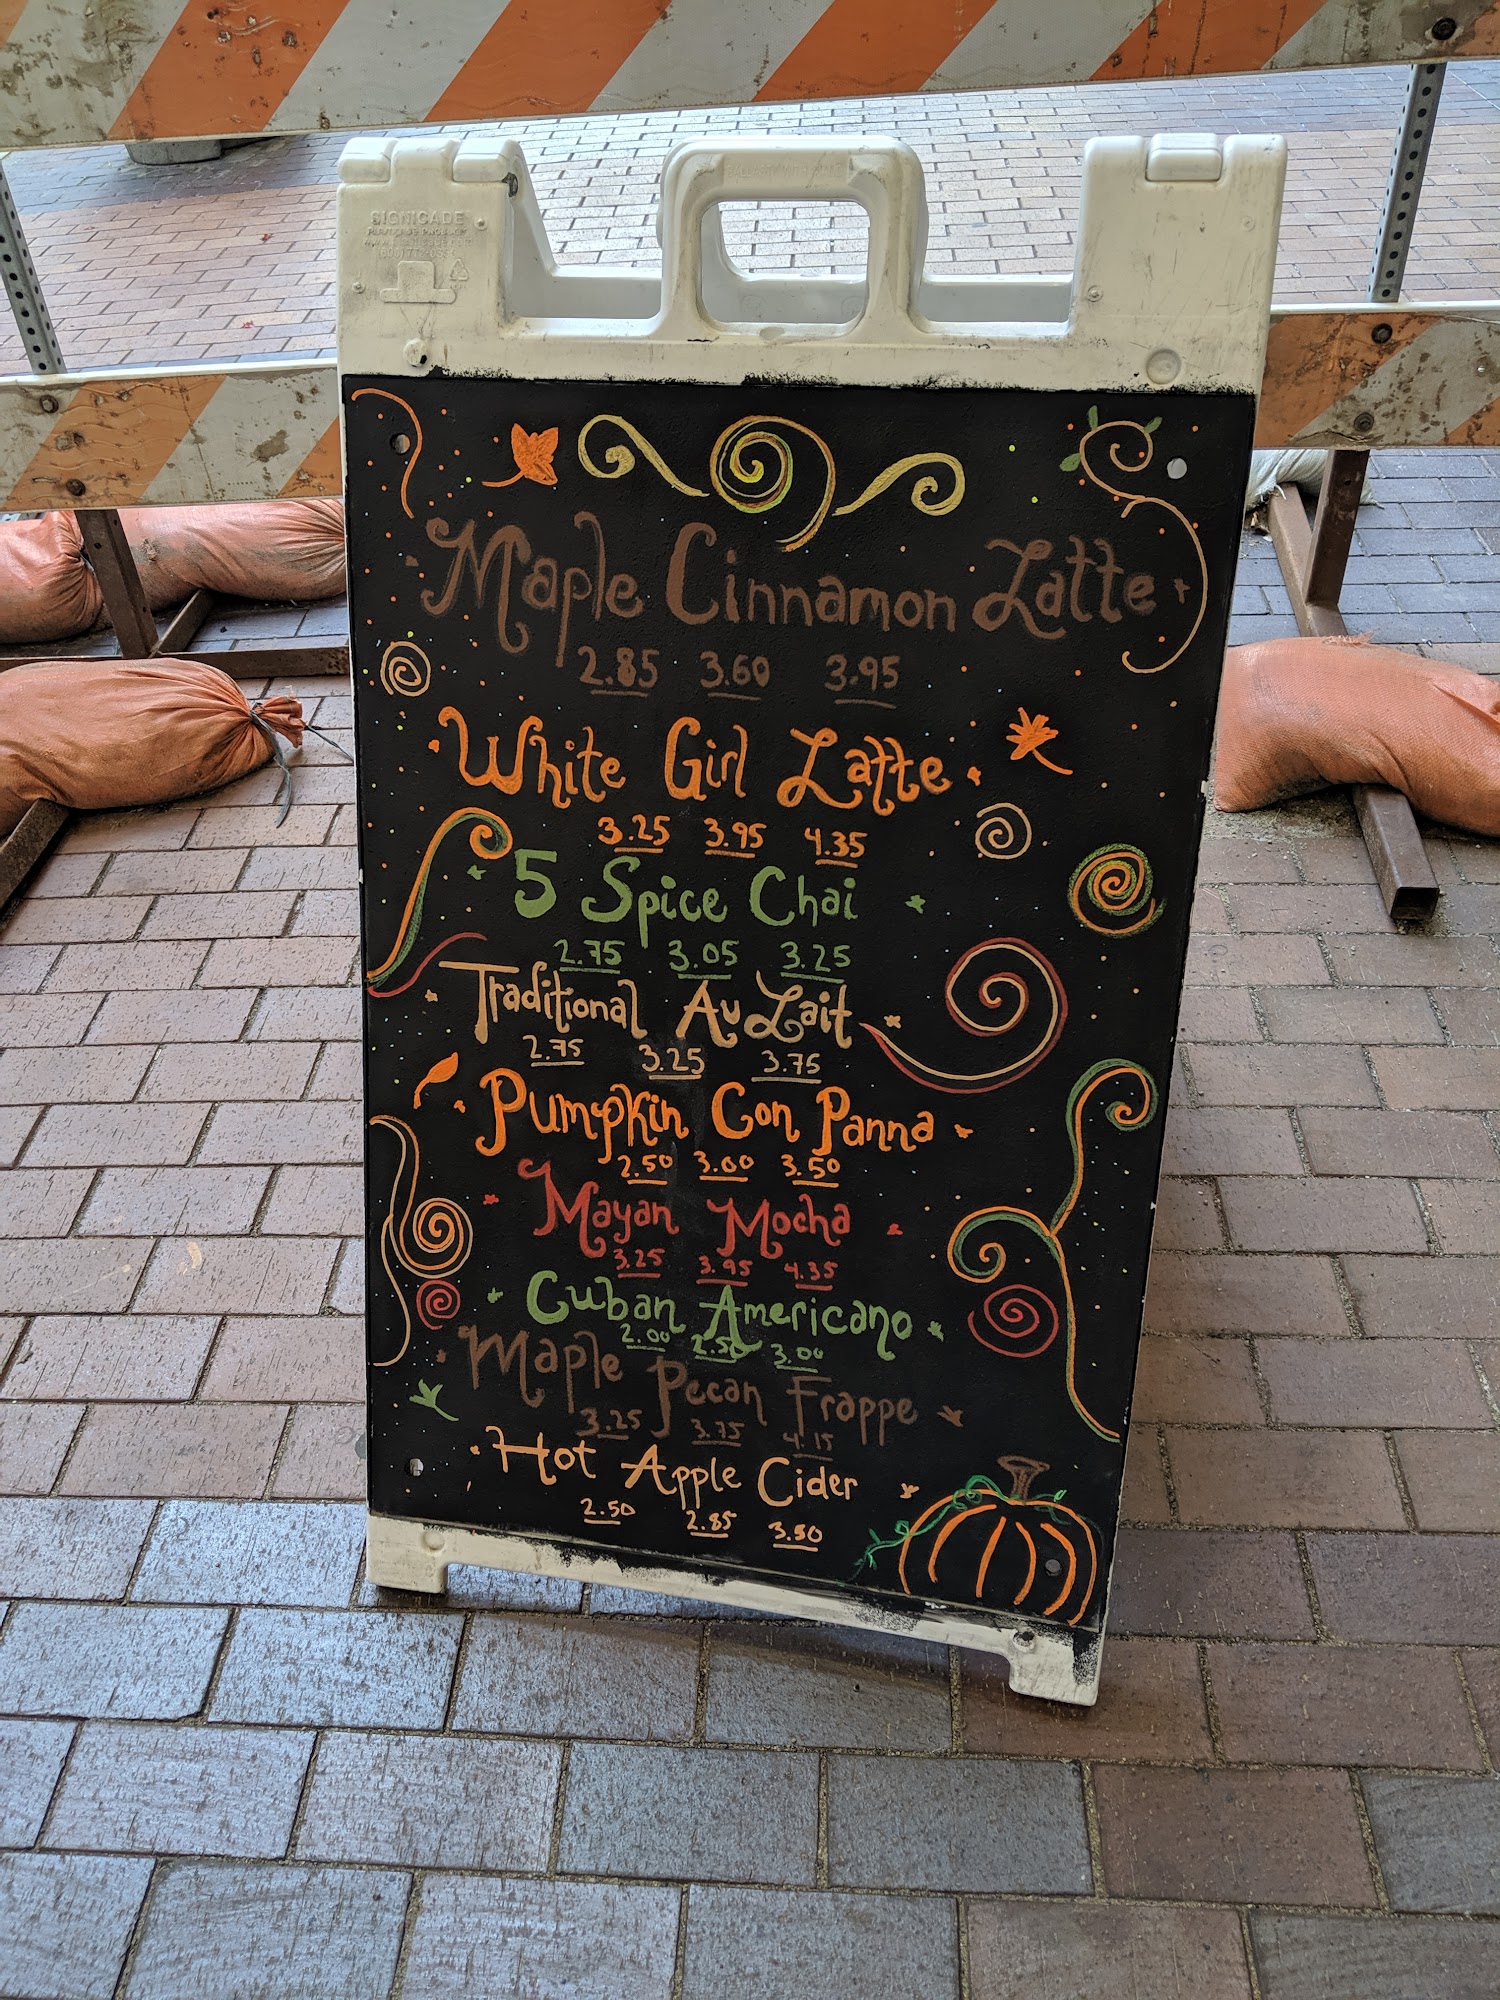 SIGNICADE
Maple Cinnamon Latte
2.85 3.60 3.95
White Girl Latte
3.25 3.95 4.35
5 Spice Chai
2.75 3.05 3.25
Traditional Au Lait
2.75 3.25 3.75
Pumpkin Con Panna
2.50 3.00 3.50
Mayan Mocha
3.25 3.95 4.35
Cuban Americano
2.00 2.50 3.00
Maple Pecan Frappe
3.25 3.75 4.15
Hot Apple Cider
2.50 2.85 3.50